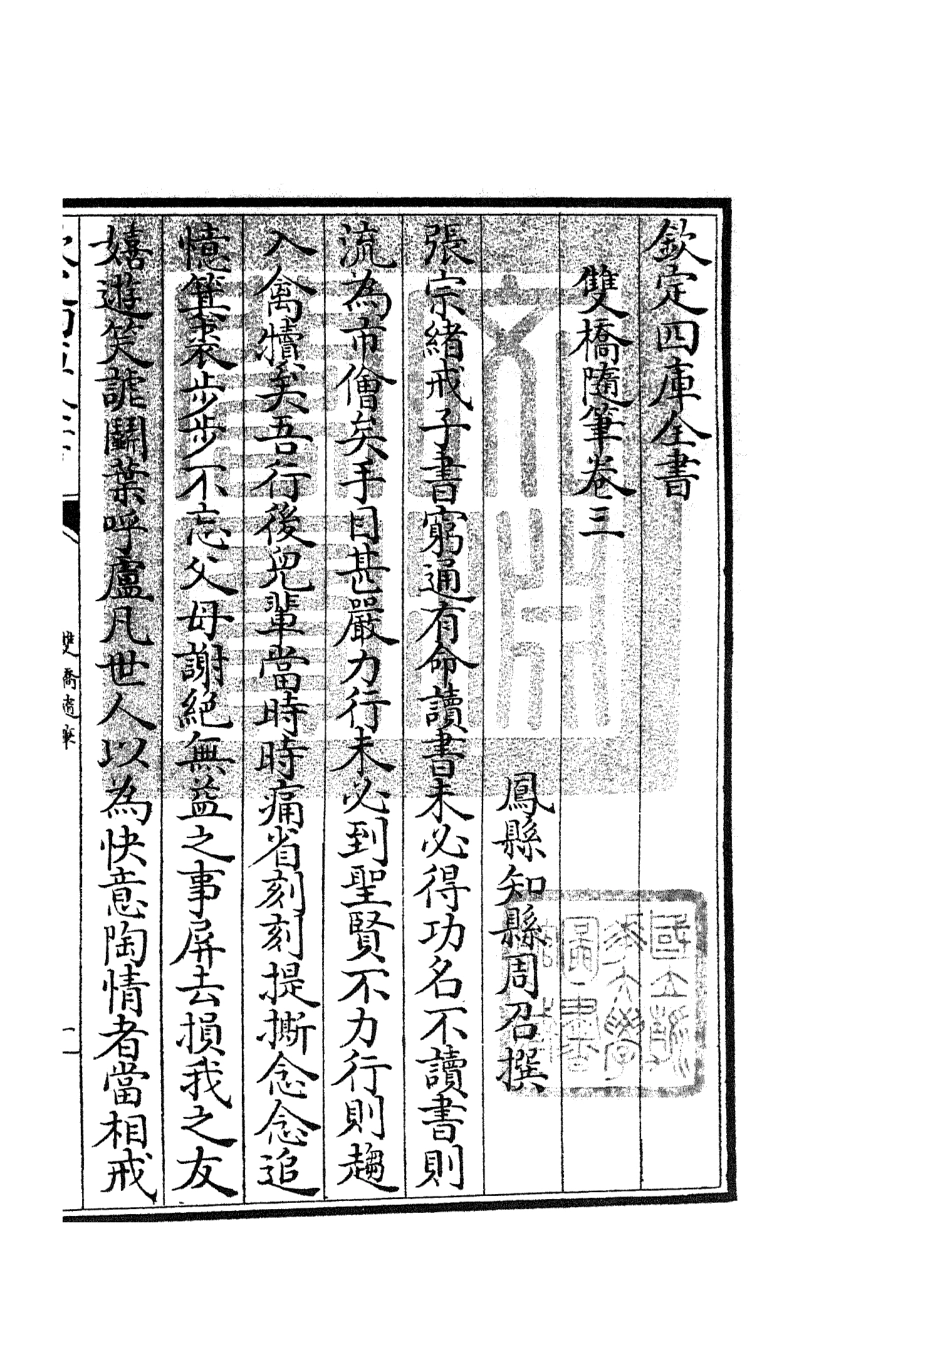 欽定四庫全書
雙橋隨筆卷三
鳳縣知縣周召撰
張宗緒戒子書窮通有命讀書未必得功名不讀書則
流為市儈矣手目甚嚴力行未必到聖賢不力行則趨
入禽犢矣吾行後兒輩當時時痛省刻刻提撕念念追
憶箕裘步步不忘父母謝絕無益之事屏去損我之友
嬉遊笑謔鬭葉呼盧凡世人以為快意陶情者當相戒
雙橋隨筆
一